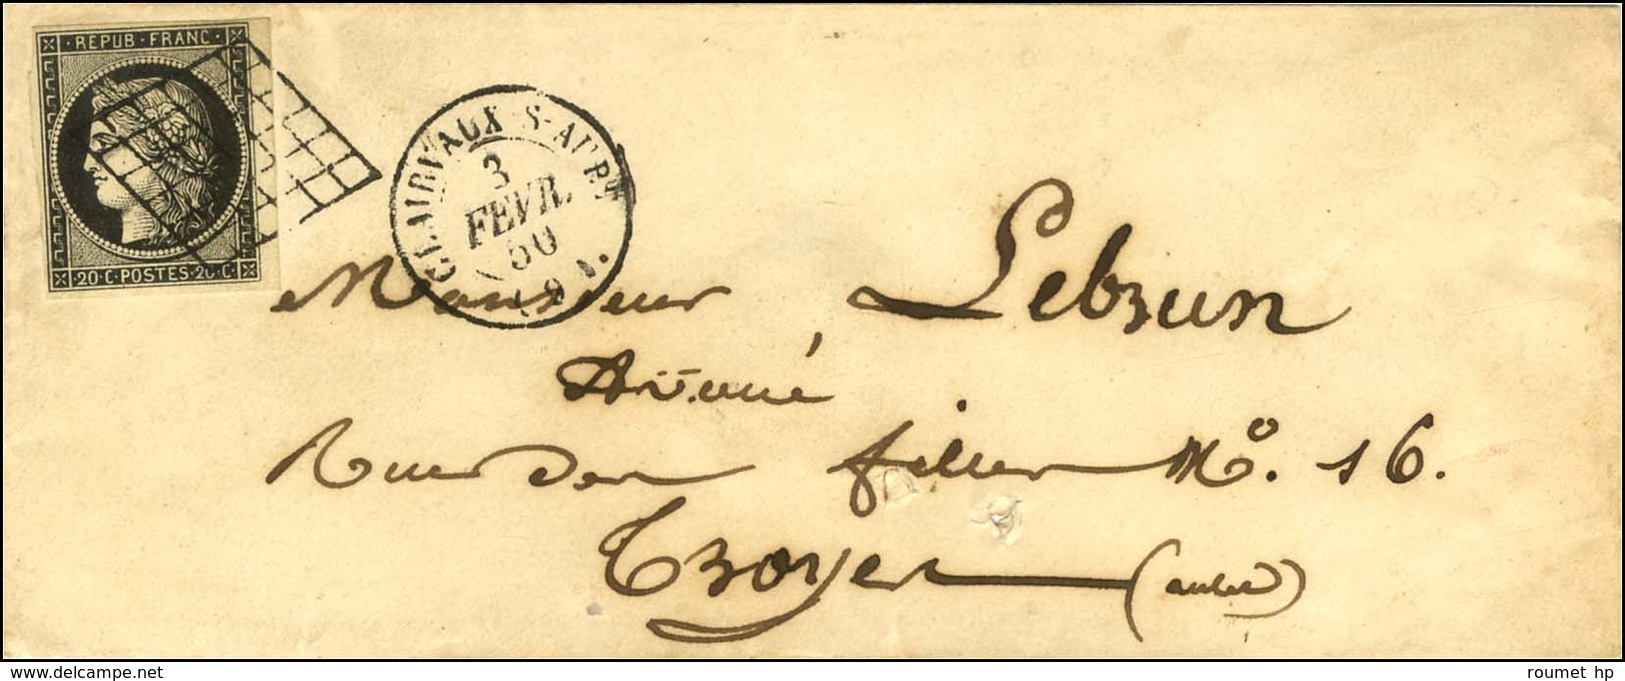 REPUB·FRANC·
20·C·POSTES·20·C·
CLAIRVAUX S-AUBE
3
FEVR.
50
(9)
Monsieur Lebrun
Avoué
Rue des filles No. 16.
Troyes (aube)
www.delcampe.net
roumet hp